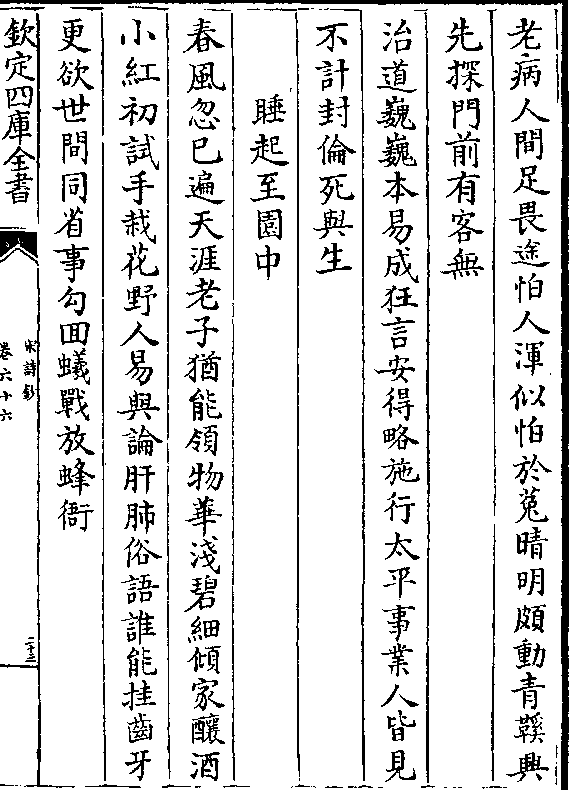 老病人間足畏途怕人渾似怕於菟晴明頗動青鞵興
先探門前有客無
治道巍巍本易成狂言安得略施行太平事業人皆見
不計封倫死與生
睡起至園中
春風忽已遍天涯老子猶能領物華淺碧細傾家釀酒
小紅初試手栽花野人易與論肝肺俗語誰能挂齒牙
更欲世間同省事勾囬蟻戰放蜂衙
欽定四庫全書
宋詩鈔
卷六十六
二十三